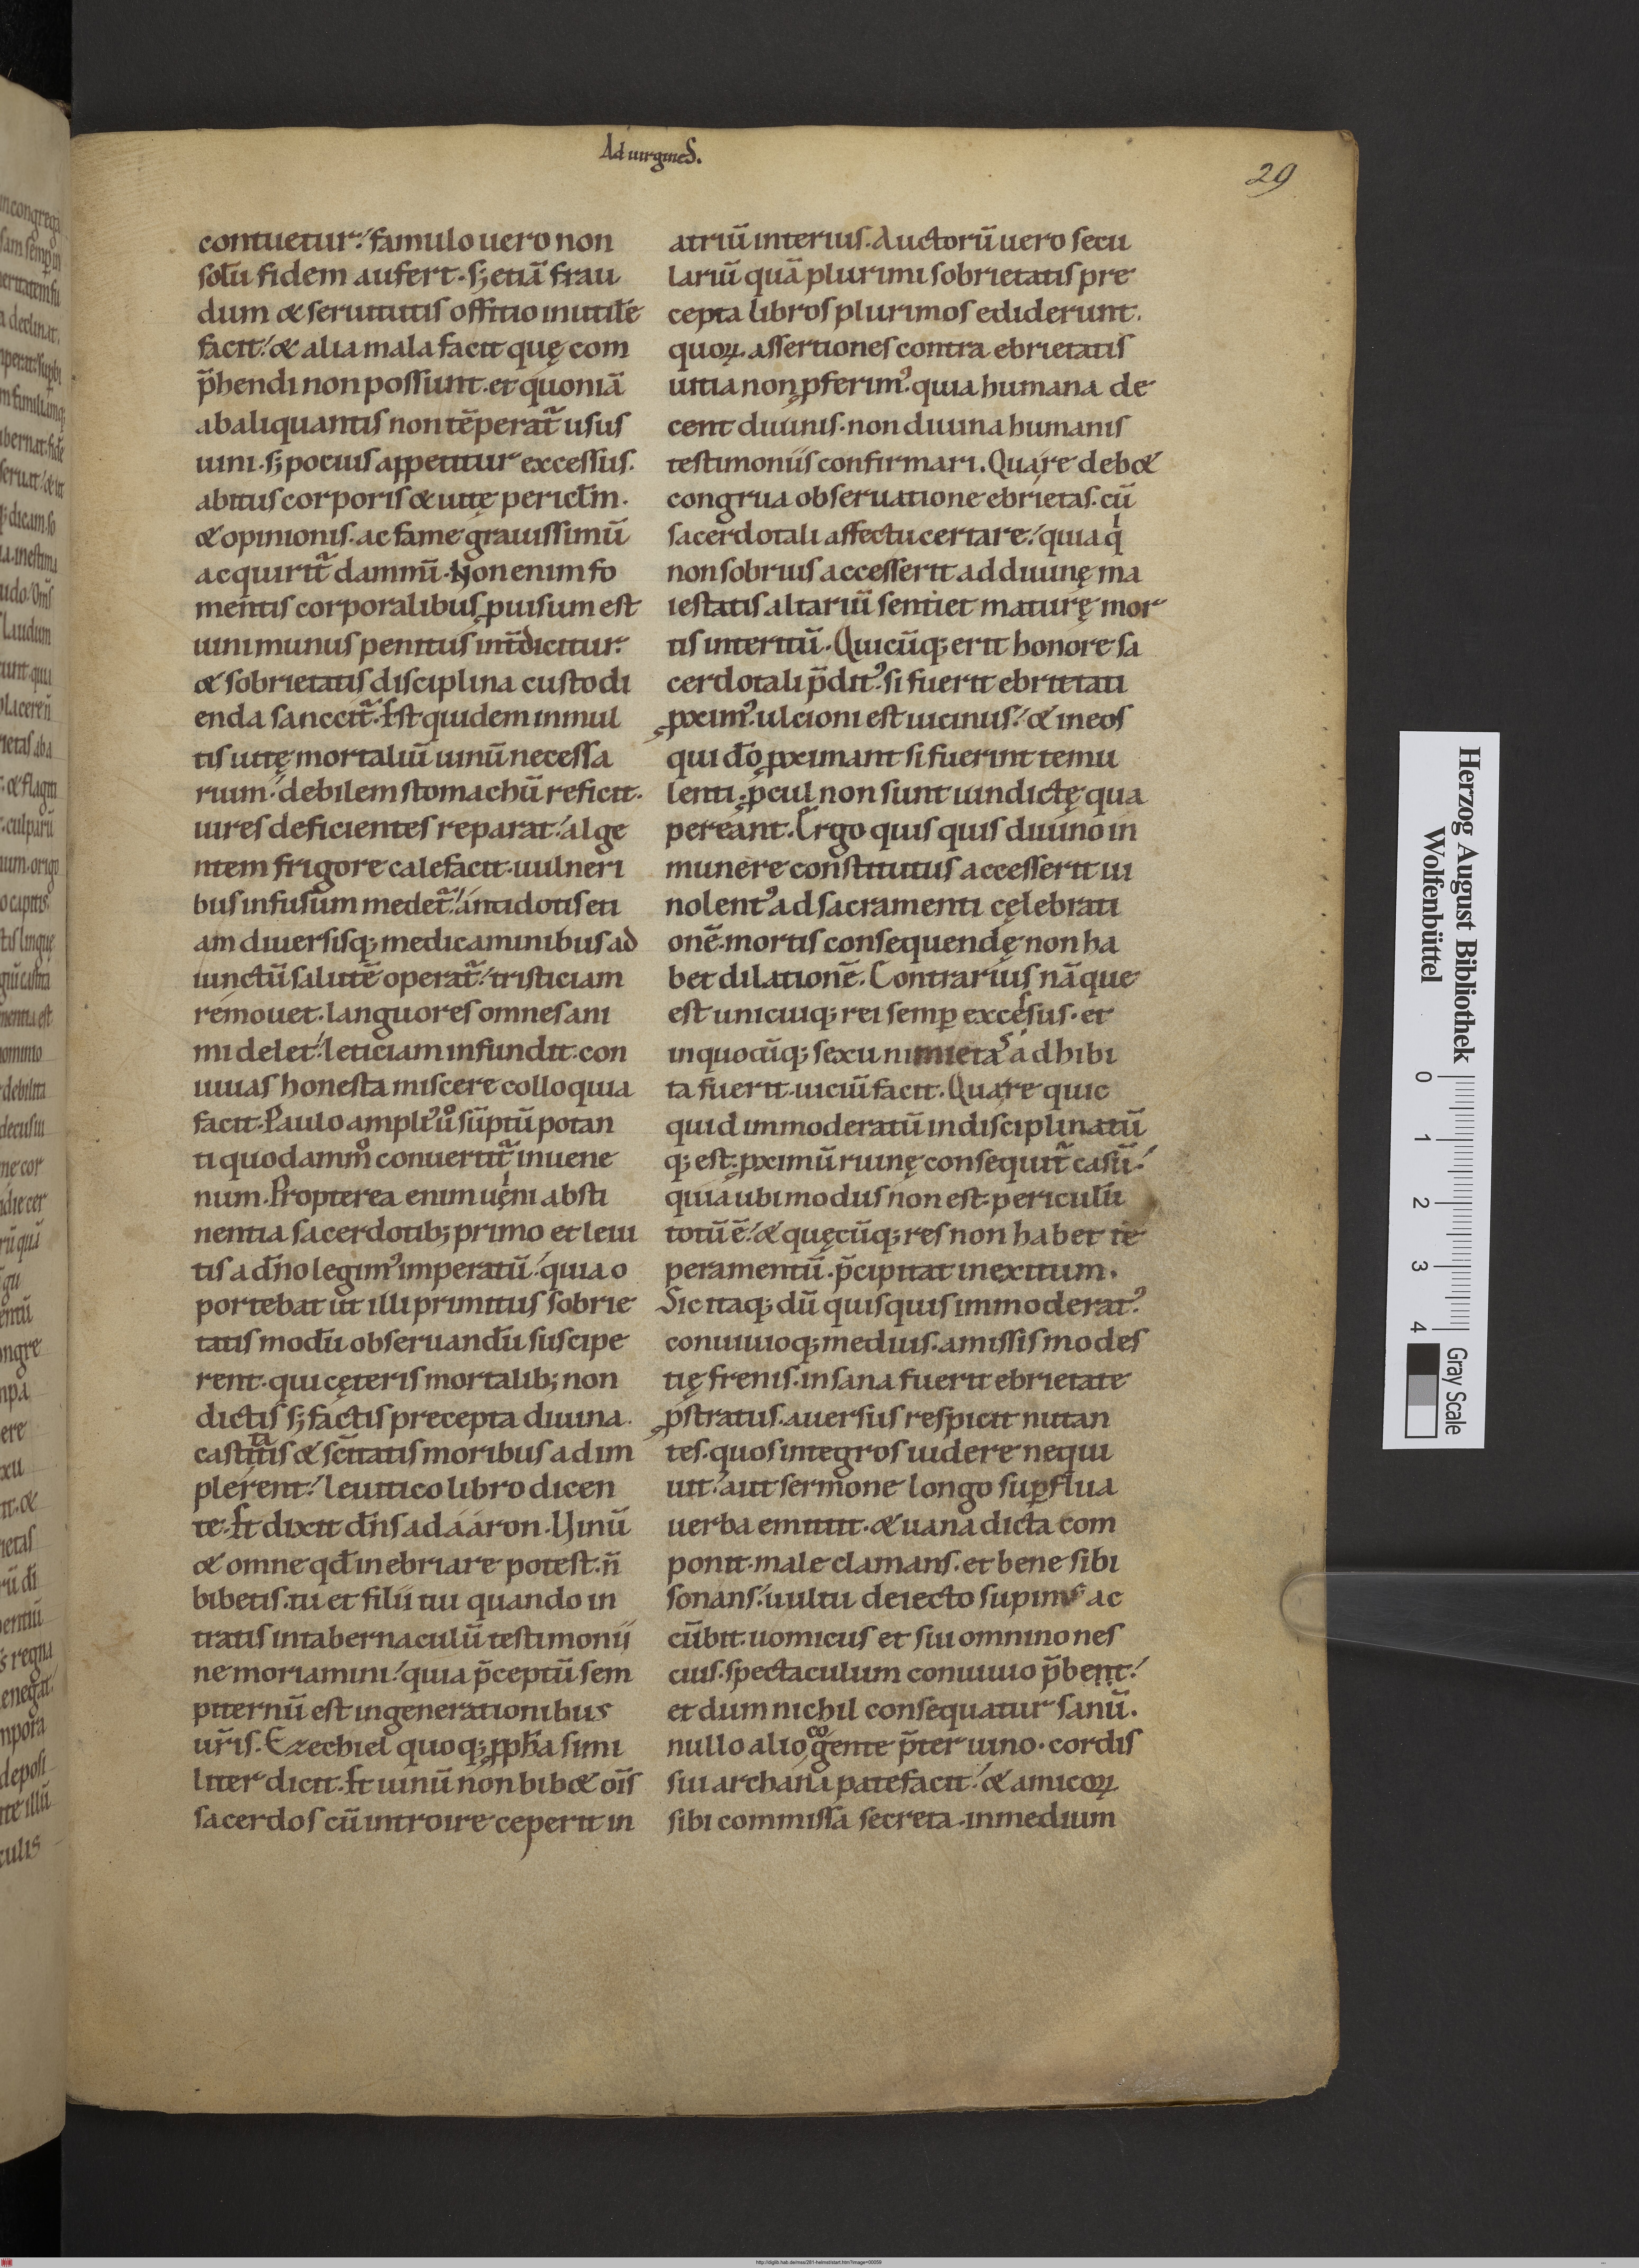 Ad uirgineS.
29
contuetur. famulo uero non
solū fidem aufert. sꝫ etiā frau
dum & seruitutis offitio inutilē
facit. & alia mala facit quę com
p̄hendi non possunt. et quoniā
ab aliquantis non tēperat̄ usus
uini. sꝫ pocius appetitur excessus.
abitus corporis & uitę pericłm.
& opinionis. ac fame grauissimū
acquirit̄ damnū. Non enim fo
mentis corporalibus ꝓuisum est
uini munus penitus int̄dicitur.
& sobrietatis disciplina custodi
enda sanccit̄. Est quidem in mul
tis uitę mortaliū uinū necessa
rium. debilem stomachū reficit.
uires deficientes reparat. alge
ntem frigore calefacit. uulneri
bus infusum medet̄. antidotis eti
am diuersisqꝫ medicaminibus ad
iunctū salutē operat̄. tristiciam
remouet. languores omnes ani
mi delet. leticiam infundit. con
uiuas honesta miscere colloquia
facit. Paulo ampliꝰ uͦ sūptū potan
ti quodammͦ conuertit̄ in uene
num. Propterea enim uęni absti
nentia sacerdotibꝫ primo et leui
tis a dn̄o legimꝰ imperatū. quia o
portebat ut illi primitus sobrie
tatis modū obseruandū suscipe
rent. qui cęteris mortalibꝫ non
dictis sꝫ factis precepta diuina.
castitatis & sc̄itatis moribus adim
plerent. leuitico libro dicen
te. Et dixit dn̄s ad ááron. Uinū
& omne qd̄ inebriare potest. n̄
bibetis. tu et filii tui quando in
tratis in tabernaculū testimonii
ne moriamini. quia p̄ceptū sem
piternū est in generationibus
ur̄is. Ezechiel quoqꝫ ꝓpħa simi
liter dicit. Et uinū non bib& oīs
sacerdos cū introire ceperit in
atriū interius. Auctorū uero secu
lariū quā plurimi sobrietatis pre
cepta libros plurimos ediderunt.
quoꝝ assertiones contra ebrietatis
uitia non ꝓferimꝰ. quia humana de
cent diuinis. non diuina humanis
testimoniis confirmari. Quare deb&
congrua obseruatione ebrietas. cū
sacerdotali affectu certare. quia qͥ
non sobrius accesserit ad diuinę ma
iestatis altariū sentiet maturę mor
tis interitū. Quicūqꝫ erit honore sa
cerdotali p̄ditꝰ. si fuerit ebritati
ꝓximꝰ. ulcioni est uicinus. & in eos
qui dō ꝓximant si fuerint temu
lenti. ꝓcul non sunt uindictę qua
pereant. Ergo quis quis diuino in
munere constitutus accesserit ui
nolentꝰ ad sacramenti cęlebrati
onē. mortis consequendę non ha
bet dilationē. Contrarius nāque
est unicuiqꝫ rei semꝑ excesus. et
in quocūqꝫ sexu nimietas adhibi
ta fuerit. uiciū facit. Quare quic
quid immoderatū indisciplinatū
qꝫ est. ꝓximū ruinę consequit̄ casū.
quia ubi modus non est. periculū
totū ē. & quęcūqꝫ res non habet tē
peramentū. p̄cipitat in exitum.
Sic itaqꝫ dū quisquis immoderatꝰ
conuiuioqꝫ medius. amissis modes
tię frenis. insana fuerit ebrietate
ꝓstratus. auersus respicit nutan
tes. quos integros uidere nequi
uit. aut sermone longo suꝑflua
uerba emittit. & uana dicta com
ponit. male clamans. et bene sibi
sonans. uultu deiecto supinus ac
cūbit. uomicus et sui omnino nes
cius. spectaculum conuiuio p̄bent.
et dum nichil consequatur sanū.
nullo alio cogente p̄ter uino. cordis
sui archana patefacit. & amicoꝝ
sibi commissa secreta. in medium
Herzog August Bibliothek
Wolfenbüttel
0 1 2 3 4
Gray Scale
http://diglib.hab.de/mss/281-helmst/start.htm?image=00059